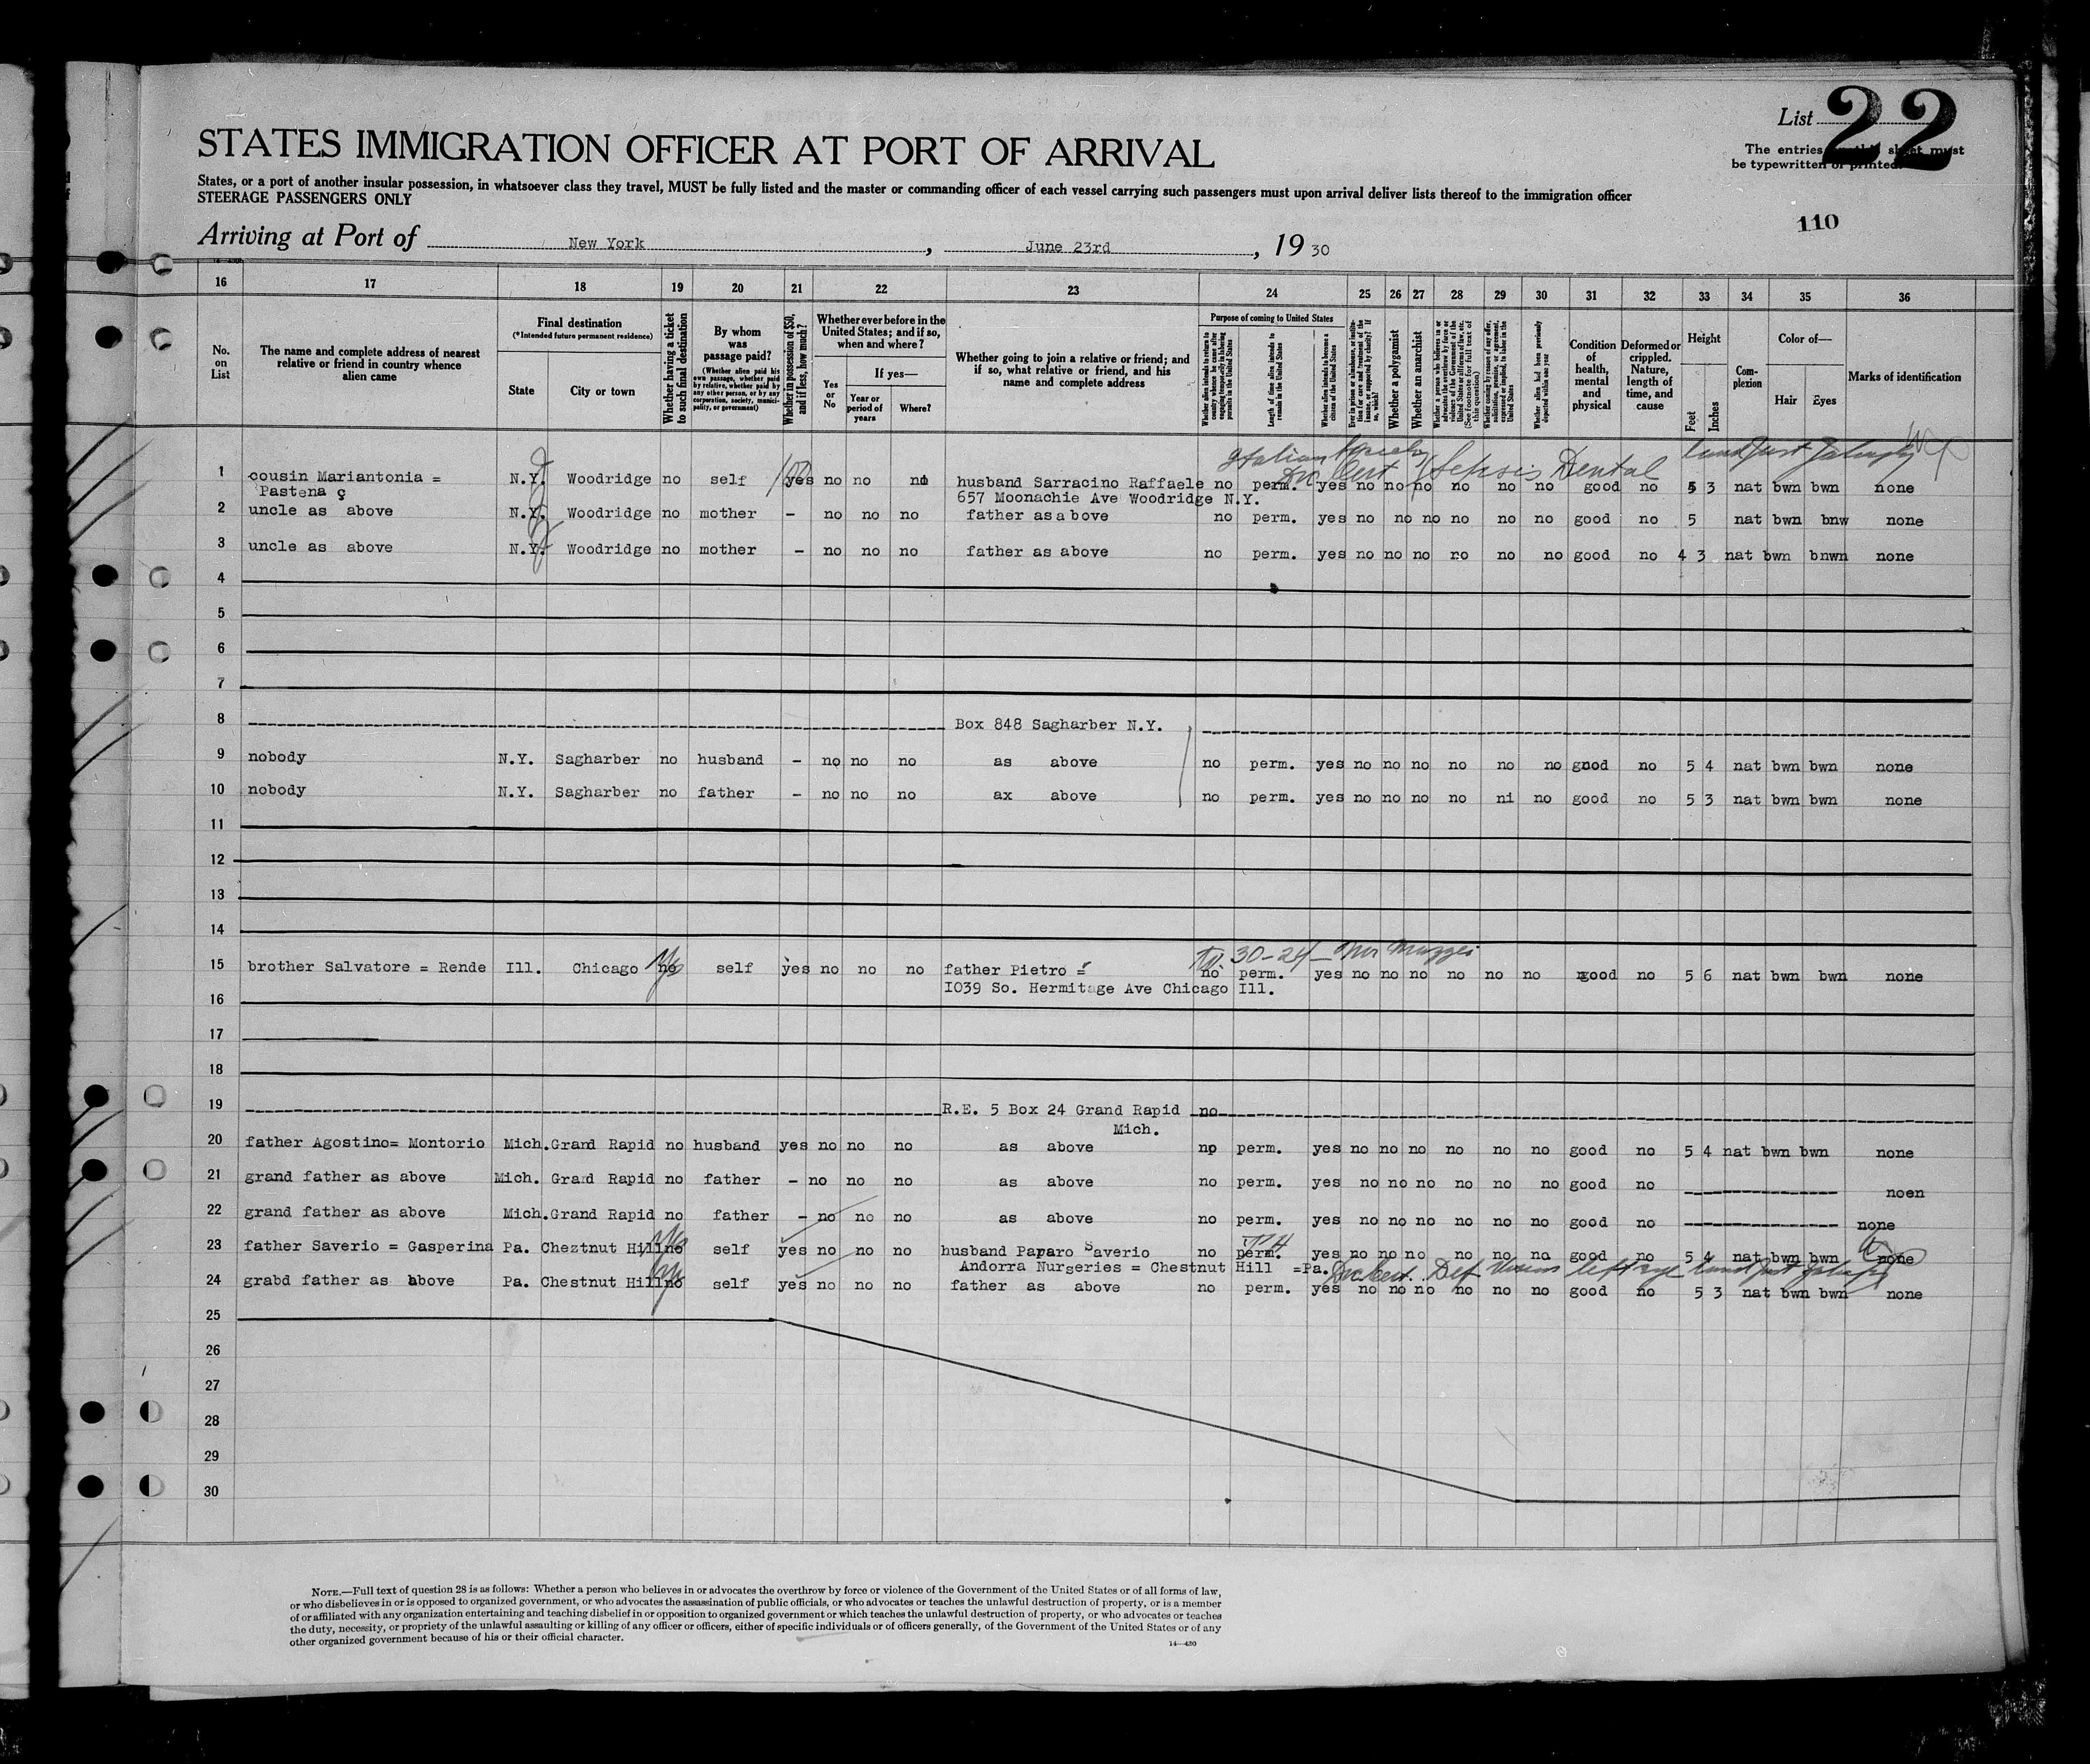 List 22
The entries on this sheet must
be typewritten or printed.
STATES IMMIGRATION OFFICER AT PORT OF ARRIVAL
States, or a port of another insular possession, in whatsoever class they travel, MUST be fully listed and the master or commanding officer of each vessel carrying such passengers must upon arrival deliver lists thereof to the immigration officer
STEERAGE PASSENGERS ONLY
110
Arriving at Port of New York, June 23rd, 19 30
16 17 18 19 20 21 22 23 24 25 26 27 28 29 30 31 32 33 34 35 36
No. on List
The name and complete address of nearest relative or friend in country whence alien came
Final destination
(*Intended future permanent residence)
State
City or town
Whether having a ticket to such final destination
By whom was passage paid?
(Whether alien paid his own passage, whether paid by relative, whether paid by any other person, or by any corporation, society, municipality, or government)
Whether in possession of $50, and if less, how much?
Whether ever before in the United States; and if so, when and where?
Yes or No
If yes—
Year or period of years
Where?
Whether going to join a relative or friend; and if so, what relative or friend, and his name and complete address
Purpose of coming to United States
Whether alien intends to return to country whence he came after engaging temporarily in laboring pursuits in the United States
Length of time alien intends to remain in the United States
Whether alien intends to become a citizen of the United States
Ever in prison or almshouse, or institution for care and treatment of the insane, or supported by charity? If so, which?
Whether a polygamist
Whether an anarchist
Whether a person who believes in or advocates the overthrow by force or violence of the Government of the United States or all forms of law, etc. (See footnote for full text of this question)
Whether coming by reason of any offer, solicitation, promise, or agreement, expressed or implied, to labor in the United States
Whether alien had been previously deported within one year
Condition of health, mental and physical
Deformed or crippled. Nature, length of time, and cause
Height
Feet
Inches
Complexion
Color of—
Hair
Eyes
Marks of identification
Italian
Dr Cert Sepsis Dental
1 cousin Mariantonia = N.Y. Woodridge no self yes no no no husband Sarracino Raffaele no perm. yes no no no no no no good no 5 3 nat bwn bwn none
Pastena ç 657 Moonachie Ave Woodridge N.Y.
2 uncle as above N.Y. Woodridge no mother - no no no father as above no perm. yes no no no no no no good no 5 nat bwn bnw none
3 uncle as above N.Y. Woodridge no mother - no no no father as above no perm. yes no no no no no no good no 4 3 nat bwn bnwn none
4
5
6
7
8 Box 848 Sagharber N.Y.
9 nobody N.Y. Sagharber no husband - no no no as above no perm. yes no no no no no no good no 5 4 nat bwn bwn none
10 nobody N.Y. Sagharber no father - no no no ax above no perm. yes no no no no ni no good no 5 3 nat bwn bwn none
11
12
13
14
30-24
15 brother Salvatore = Rende Ill. Chicago no yes self yes no no no father Pietro = no perm. yes no no no no no no good no 5 6 nat bwn bwn none
1039 So. Hermitage Ave Chicago Ill.
16
17
18
19 R.E. 5 Box 24 Grand Rapid no
Mich.
20 father Agostino= Montorio Mich. Grand Rapid no husband yes no no no as above no perm. yes no no no no no no good no 5 4 nat bwn bwn none
21 grand father as above Mich. Grand Rapid no father - no no no as above no perm. yes no no no no no no good no noen
22 grand father as above Mich. Grand Rapid no father - no no no as above no perm. yes no no no no no no good no none
23 father Saverio = Gasperina Pa. Cheztnut Hill no yes self yes no no no husband Paparo Saverio no perm. yes no no no no no no good no 5 4 nat bwn bwn none
Andorra Nurgeries = Chestnut Hill =Pa.
Dr Cert. Def Vision left eye
24 grabd father as above Pa. Chestnut Hill no yes self yes no no no father as above no perm. yes no no no no no no good no 5 3 nat bwn bwn none
25
26
27
28
29
30
NOTE.—Full text of question 28 is as follows: Whether a person who believes in or advocates the overthrow by force or violence of the Government of the United States or of all forms of law,
or who disbelieves in or is opposed to organized government, or who advocates the assassination of public officials, or who advocates or teaches the unlawful destruction of property, or is a member
of or affiliated with any organization entertaining and teaching disbelief in or opposition to organized government or which teaches the unlawful destruction of property, or who advocates or teaches
the duty, necessity, or propriety of the unlawful assaulting or killing of any officer or officers, either of specific individuals or of officers generally, of the Government of the United States or of any
other organized government because of his or their official character.
14—430